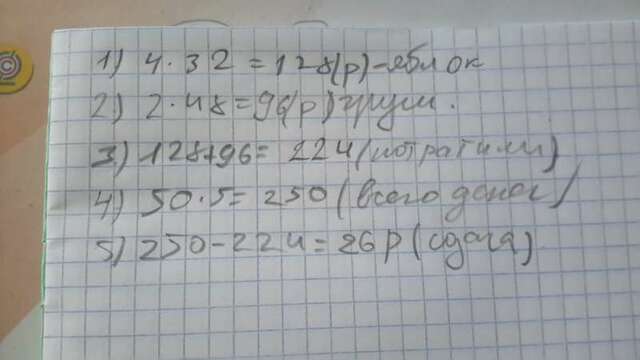 1) 4·32=128(р)-яблок
2) 2·48=96(р) груши.
3) 128+96=224 (потратили)
4) 50·5=250 (всего денег)
5) 250-224=26р (сдача)